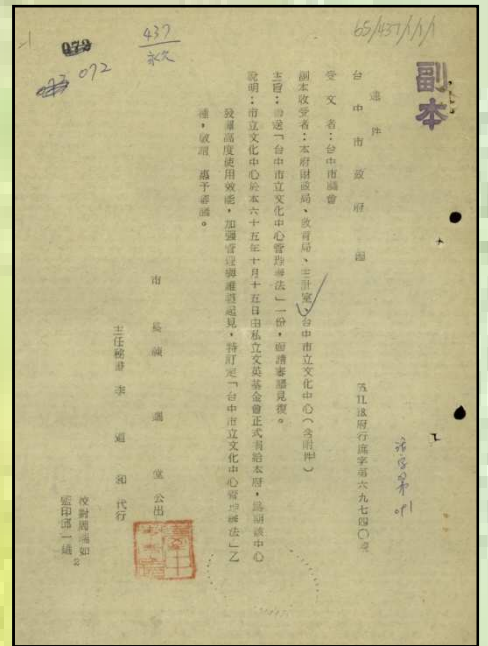 副本
65/437/1/1/1
437
永久
072
072
速件
台中市政府 函
65.11.18府行法字第六九七四〇號
受文者：台中市議會
副本收受者：本府財政局、教育局、主計室、台中市立文化中心（含附件）
主旨：函送「台中市立文化中心管理辦法」一份，函請審議見復。
說明：市立文化中心於本六十五年十月十五日由私立文英基金會正式捐給本府，為期該中心
發揮高度使用效能，加強管理與維護起見，特訂定「台中市立文化中心管理辦法」乙
種，敬請 惠予審議。
市長 陳 公出
主任秘書 李 代行
校對
監印邱一
2